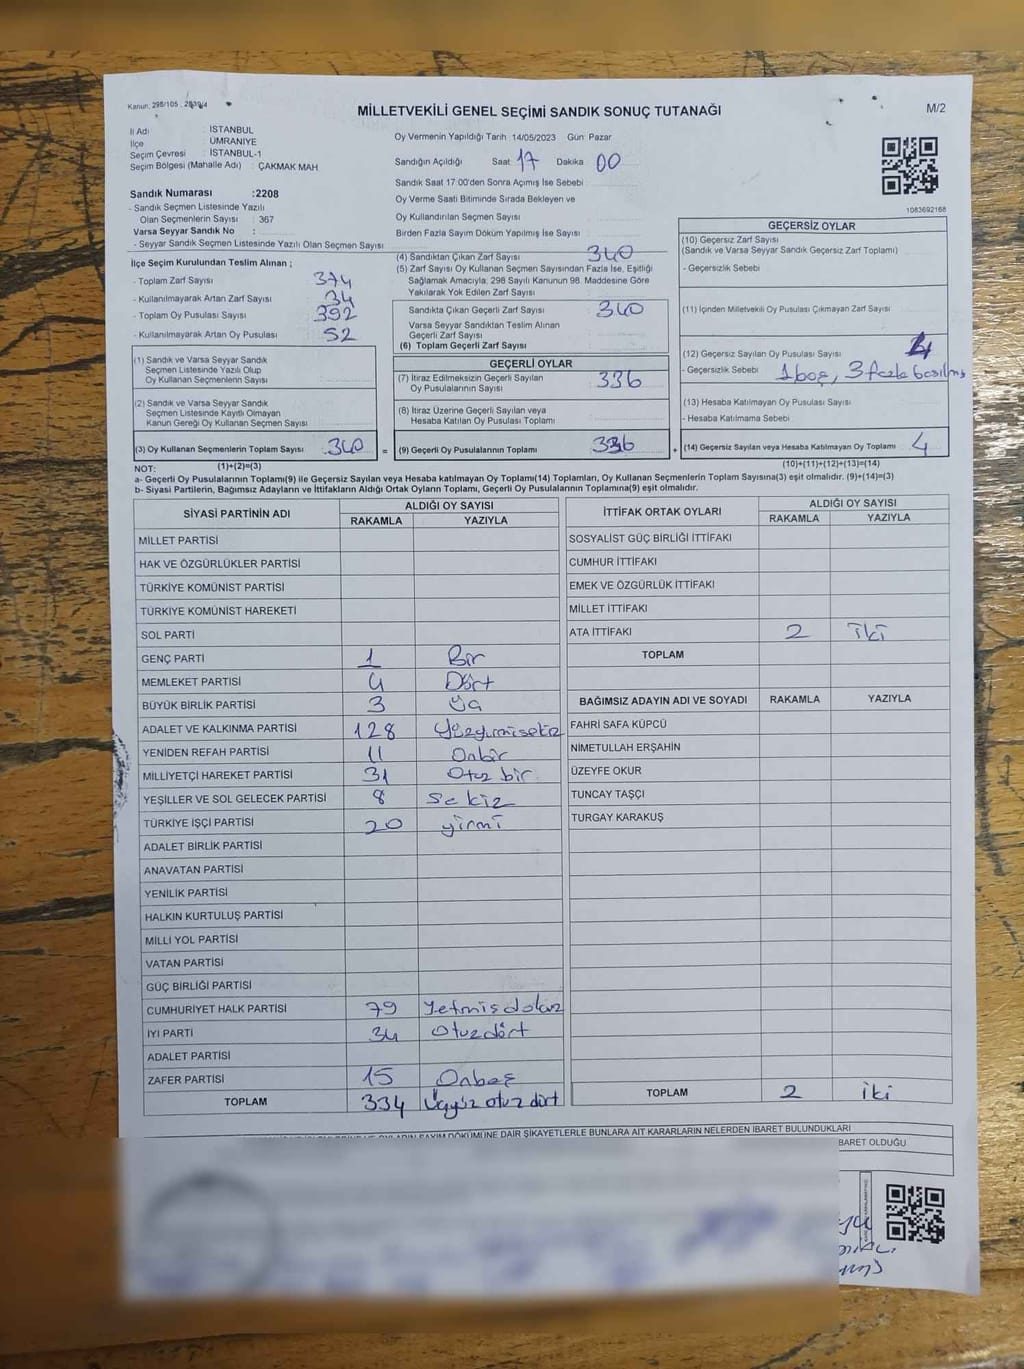 Kanun, 298/105 , 2839/4
MİLLETVEKİLİ GENEL SEÇİMİ SANDIK SONUÇ TUTANAĞI
M/2
İl Adı : İSTANBUL
İlçe : ÜMRANİYE
Seçim Çevresi : İSTANBUL-1
Seçim Bölgesi (Mahalle Adı) : ÇAKMAK MAH
Sandık Numarası :2208
- Sandık Seçmen Listesinde Yazılı
Olan Seçmenlerin Sayısı : 367
Varsa Seyyar Sandık No :
- Seyyar Sandık Seçmen Listesinde Yazılı Olan Seçmen Sayısı
Oy Vermenin Yapıldığı Tarih 14/05/2023 Gün: Pazar
Sandığın Açıldığı Saat 17 Dakika 00
Sandık Saat 17:00'den Sonra Açımış İse Sebebi
Oy Verme Saati Bitiminde Sırada Bekleyen ve
Oy Kullandırılan Seçmen Sayısı
Birden Fazla Sayım Döküm Yapılmış İse Sayısı
1083692168
İlçe Seçim Kurulundan Teslim Alınan ;
- Toplam Zarf Sayısı 374
- Kullanılmayarak Artan Zarf Sayısı 34
- Toplam Oy Pusulası Sayısı 392
- Kullanılmayarak Artan Oy Pusulası 52
(1) Sandık ve Varsa Seyyar Sandık
Seçmen Listesinde Yazılı Olup
Oy Kullanan Seçmenlerin Sayısı
(2) Sandık ve Varsa Seyyar Sandık
Seçmen Listesinde Kayıtlı Olmayan
Kanun Gereği Oy Kullanan Seçmen Sayısı
(3) Oy Kullanan Seçmenlerin Toplam Sayısı 340 =
(1)+(2)=(3)
(4) Sandıktan Çıkan Zarf Sayısı 340
(5) Zarf Sayısı Oy Kullanan Seçmen Sayısından Fazla İse, Eşitliği
Sağlamak Amacıyla; 298 Sayılı Kanunun 98. Maddesine Göre
Yakılarak Yok Edilen Zarf Sayısı
Sandıkta Çıkan Geçerli Zarf Sayısı 340
Varsa Seyyar Sandıktan Teslim Alınan
Geçerli Zarf Sayısı
(6) Toplam Geçerli Zarf Sayısı
GEÇERLİ OYLAR
(7) İtiraz Edilmeksizin Geçerli Sayılan
Oy Pusulalarının Sayısı 336
(8) İtiraz Üzerine Geçerli Sayılan veya
Hesaba Katılan Oy Pusulası Toplamı
(9) Geçerli Oy Pusulalarının Toplamı 336 +
GEÇERSİZ OYLAR
(10) Geçersiz Zarf Sayısı
(Sandık ve Varsa Seyyar Sandık Geçersiz Zarf Toplamı)
- Geçersizlik Sebebi
(11) İçinden Milletvekili Oy Pusulası Çıkmayan Zarf Sayısı
(12) Geçersiz Sayılan Oy Pusulası Sayısı 4
- Geçersizlik Sebebi 1 boş, 3 fazla basılmış
(13) Hesaba Katılmayan Oy Pusulası Sayısı
- Hesaba Katılmama Sebebi
(14) Geçersiz Sayılan veya Hesaba Katılmayan Oy Toplamı 4
(10)+(11)+(12)+(13)=(14)
NOT:
a- Geçerli Oy Pusulalarının Toplamı(9) ile Geçersiz Sayılan veya Hesaba katılmayan Oy Toplamı(14) Toplamları, Oy Kullanan Seçmenlerin Toplam Sayısına(3) eşit olmalıdır. (9)+(14)=(3)
b- Siyasi Partilerin, Bağımsız Adayların ve İttifakların Aldığı Ortak Oyların Toplamı, Geçerli Oy Pusulalarının Toplamına(9) eşit olmalıdır.
SİYASİ PARTİNİN ADI
ALDIĞI OY SAYISI
RAKAMLA YAZIYLA
MİLLET PARTİSİ
HAK VE ÖZGÜRLÜKLER PARTİSİ
TÜRKİYE KOMÜNİST PARTİSİ
TÜRKİYE KOMÜNİST HAREKETİ
SOL PARTİ
GENÇ PARTİ 1 Bir
MEMLEKET PARTİSİ 4 Dört
BÜYÜK BİRLİK PARTİSİ 3 Üç
ADALET VE KALKINMA PARTİSİ 128 Yüzyirmisekiz
YENİDEN REFAH PARTİSİ 11 Onbir
MİLLİYETÇİ HAREKET PARTİSİ 31 Otuz bir
YEŞİLLER VE SOL GELECEK PARTİSİ 8 Sekiz
TÜRKİYE İŞÇİ PARTİSİ 20 yirmi
ADALET BİRLİK PARTİSİ
ANAVATAN PARTİSİ
YENİLİK PARTİSİ
HALKIN KURTULUŞ PARTİSİ
MİLLİ YOL PARTİSİ
VATAN PARTİSİ
GÜÇ BİRLİĞİ PARTİSİ
CUMHURİYET HALK PARTİSİ 79 Yetmişdokuz
İYİ PARTİ 34 Otuzdört
ADALET PARTİSİ
ZAFER PARTİSİ 15 Onbeş
TOPLAM 334 Üçyüz otuz dört
İTTİFAK ORTAK OYLARI
ALDIĞI OY SAYISI
RAKAMLA YAZIYLA
SOSYALİST GÜÇ BİRLİĞİ İTTİFAKI
CUMHUR İTTİFAKI
EMEK VE ÖZGÜRLÜK İTTİFAKI
MİLLET İTTİFAKI
ATA İTTİFAKI 2 İki
TOPLAM
BAĞIMSIZ ADAYIN ADI VE SOYADI RAKAMLA YAZIYLA
FAHRİ SAFA KÜPCÜ
NİMETULLAH ERŞAHİN
ÜZEYFE OKUR
TUNCAY TAŞÇI
TURGAY KARAKUŞ
TOPLAM 2 iki
DÖKÜMÜNE DAİR ŞİKAYETLERLE BUNLARA AİT KARARLARIN NELERDEN İBARET BULUNDUKLARI
BARET OLDUĞU